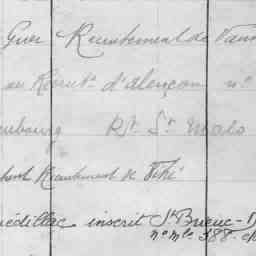 Guer Recrutement de Vann
au Recrut. d'Alençon n°
bourg Rt. St. Malo
Recrutement de
édillac inscrit St Brieuc-
n° mle 388